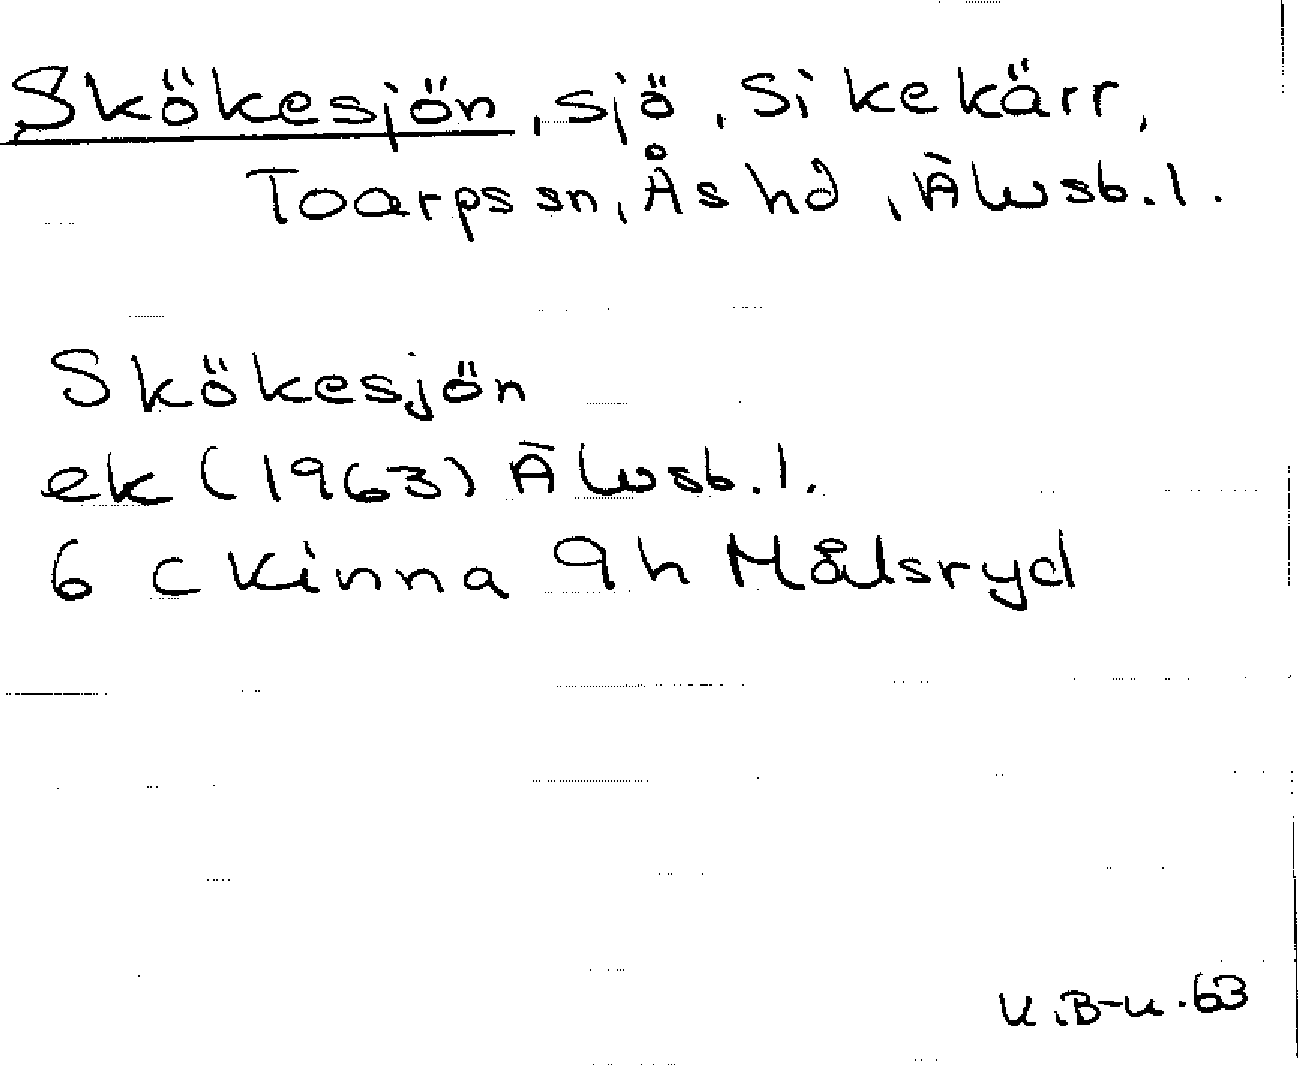 Skökesjön, sjö, Sikekärr,
Toarps sn, Ås hd, Älvsb. l.
Skökesjön
ek (1963) Älvsb. l.
6 c Kinna 9h Målsryd
K.B-n. 63